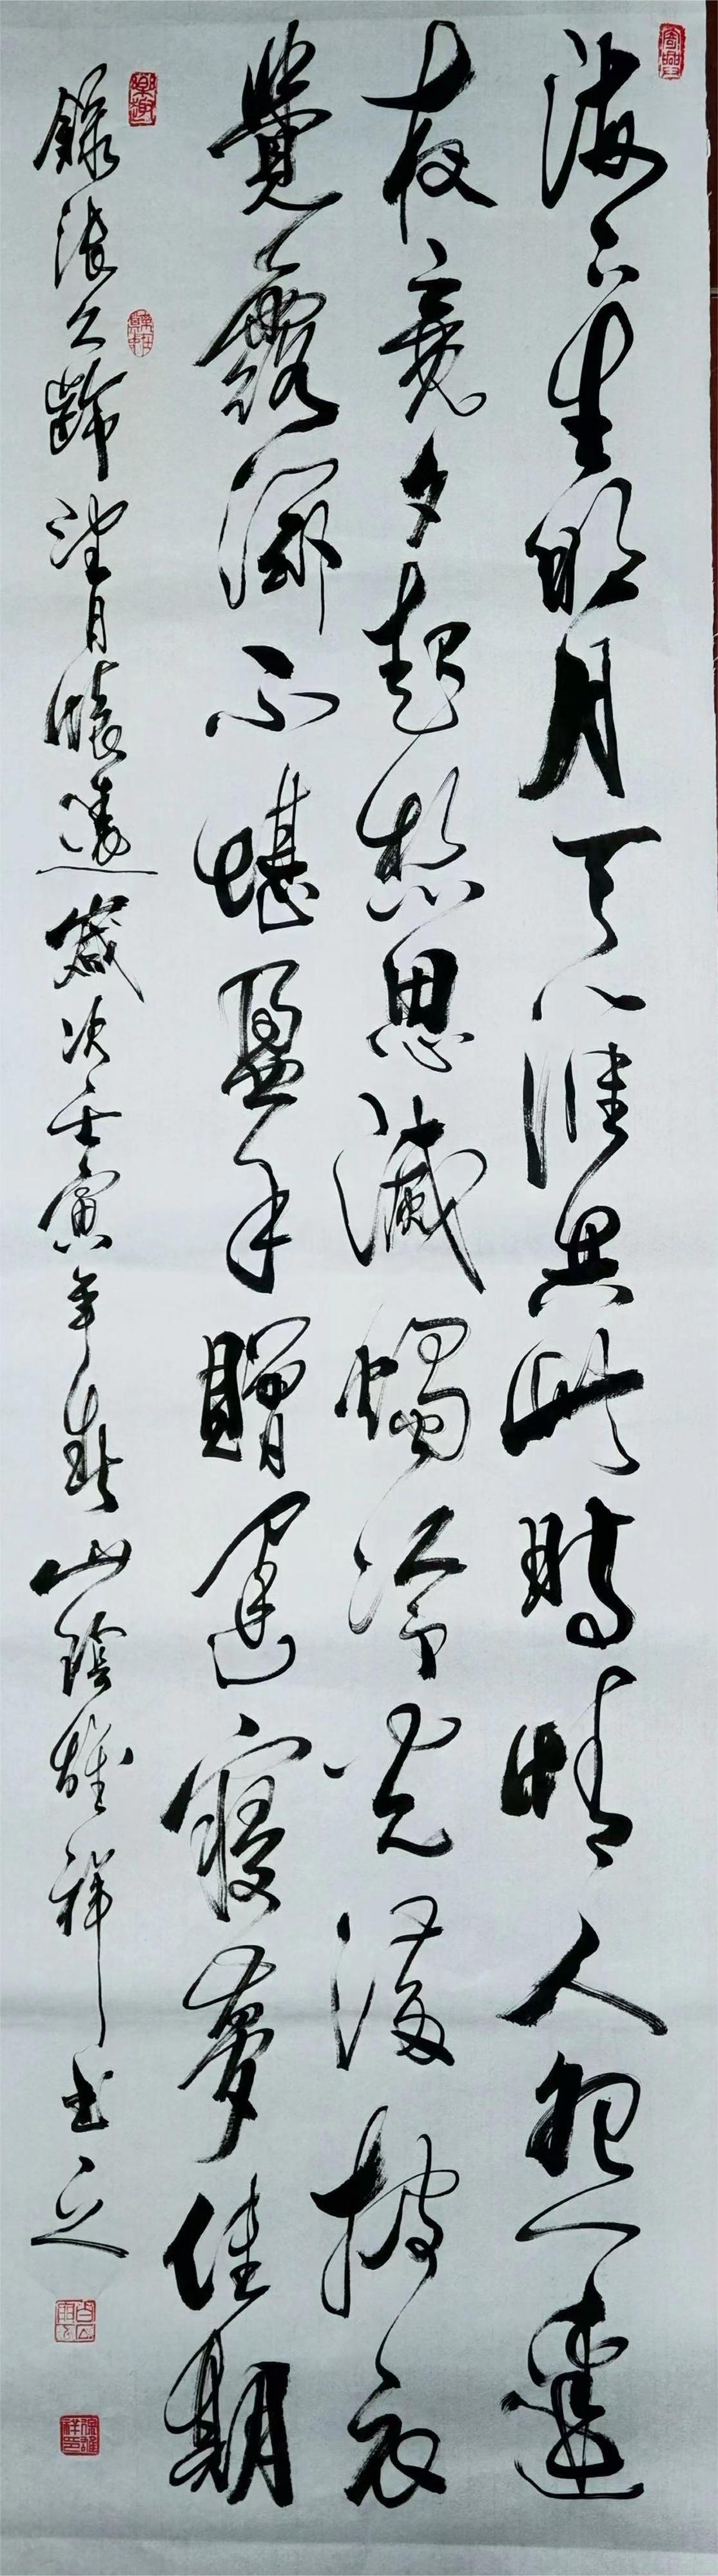 海上生明月天涯共此時情人怨遙
夜竟夕起想思滅燭怜光滿披衣
覺露滋不堪盈手贈還寢夢佳期
錄張九齡望月懷遠歲次壬寅年春山陰雄祥書之